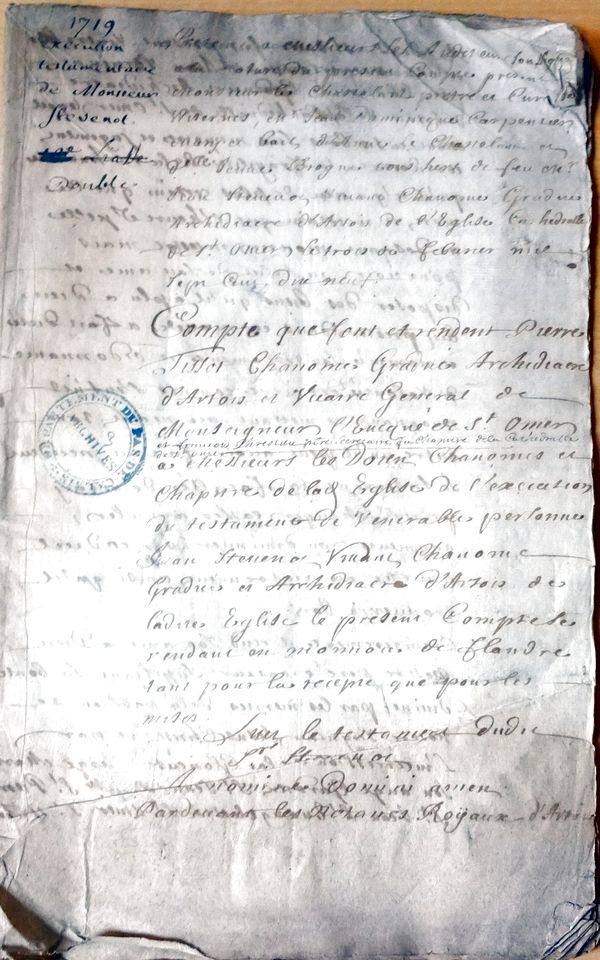 1719
execution
testamentaire
de Monsieur
Stevenot
Liasse
Double
Presenté a messieurs les Auditeurs
a la cloture du present Compte presens
monsieur le Chastelain prestre et Curé
Wisernes, et Jean Dominique Carpentier
bail d'Anne le Chastelain et
de feu Mr
Jean Stevenot vivant Chanoine Gradué
Archidiacre d'Artois de l'Eglise Cathedralle
de St omer le trois de febvrier mil
sept cens dix neuf.
Compte que font et rendent Pierre
Tissot Chanoine Gradué Archidiacre
d'Artois et Vicaire General de
Monseigneur l'Evéque de St Omer
et francois pretre du Chapitre de la Cathedralle
de St omer
a Messieurs les Doien Chanoines et
Chapitre de lad Eglise de l'execution
du testament de Venerable personne
Jean Stevenot Vivant Chanoine
Gradué et Archidiacre d'Artois de
ladite Eglise le present Compte se
rendant en monnoie de flandre
tant pour la recepte que pour les
mises
Suit le testament dudit
Sr Stevenot
In nomine Domini amen
Pardevant les Notaires Royaux d'Artois
DEPARTEMENT DU PAS DE CALAIS
ARCHIVES